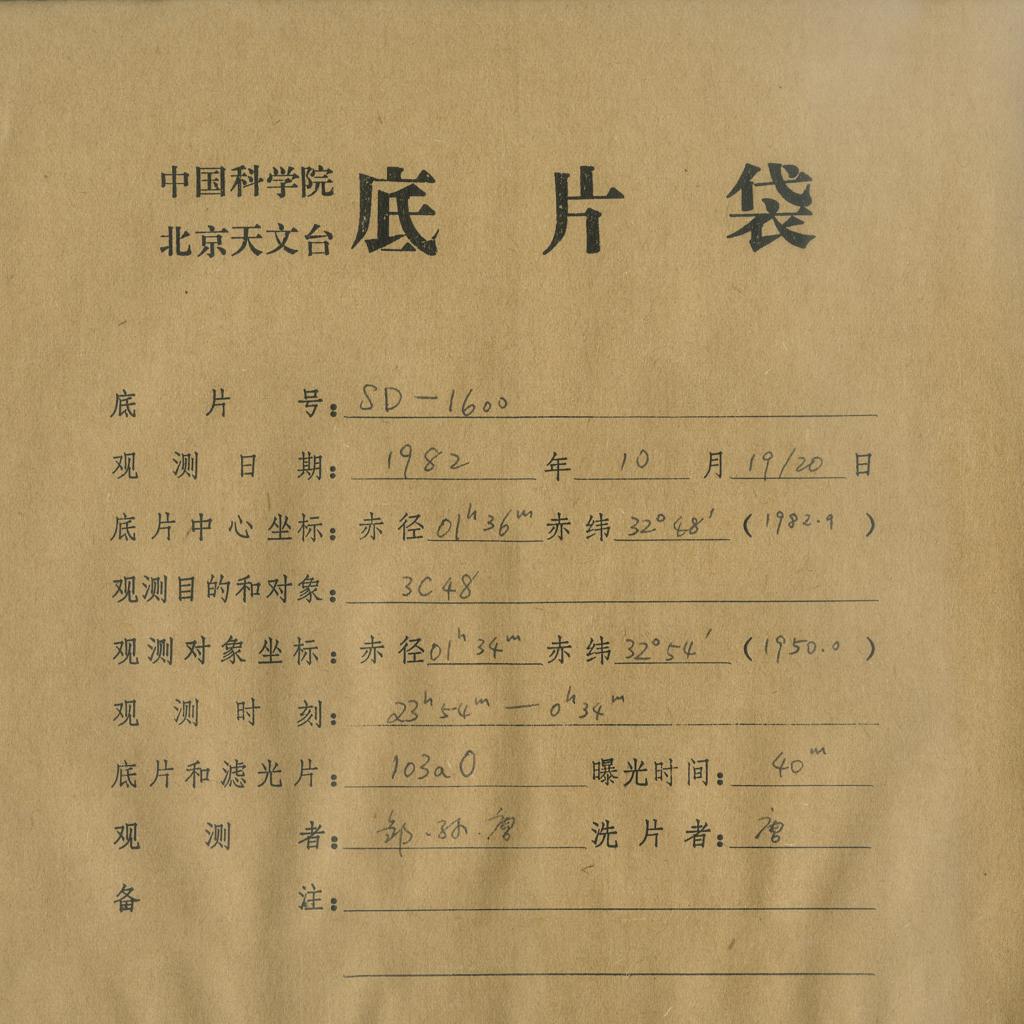 中国科学院
北京天文台
底片袋
底片号：SD-1600
观测日期：1982年10月19/20日
底片中心坐标：赤径01ʰ36ᵐ赤纬32°48′(1982.9)
观测目的和对象：3C48
观测对象坐标：赤径01ʰ34ᵐ赤纬32°54′(1950.0)
观测时刻：23ʰ54ᵐ—0ʰ34ᵐ
底片和滤光片：103aO 曝光时间：40ᵐ
观测者： 洗片者：唐
备注：